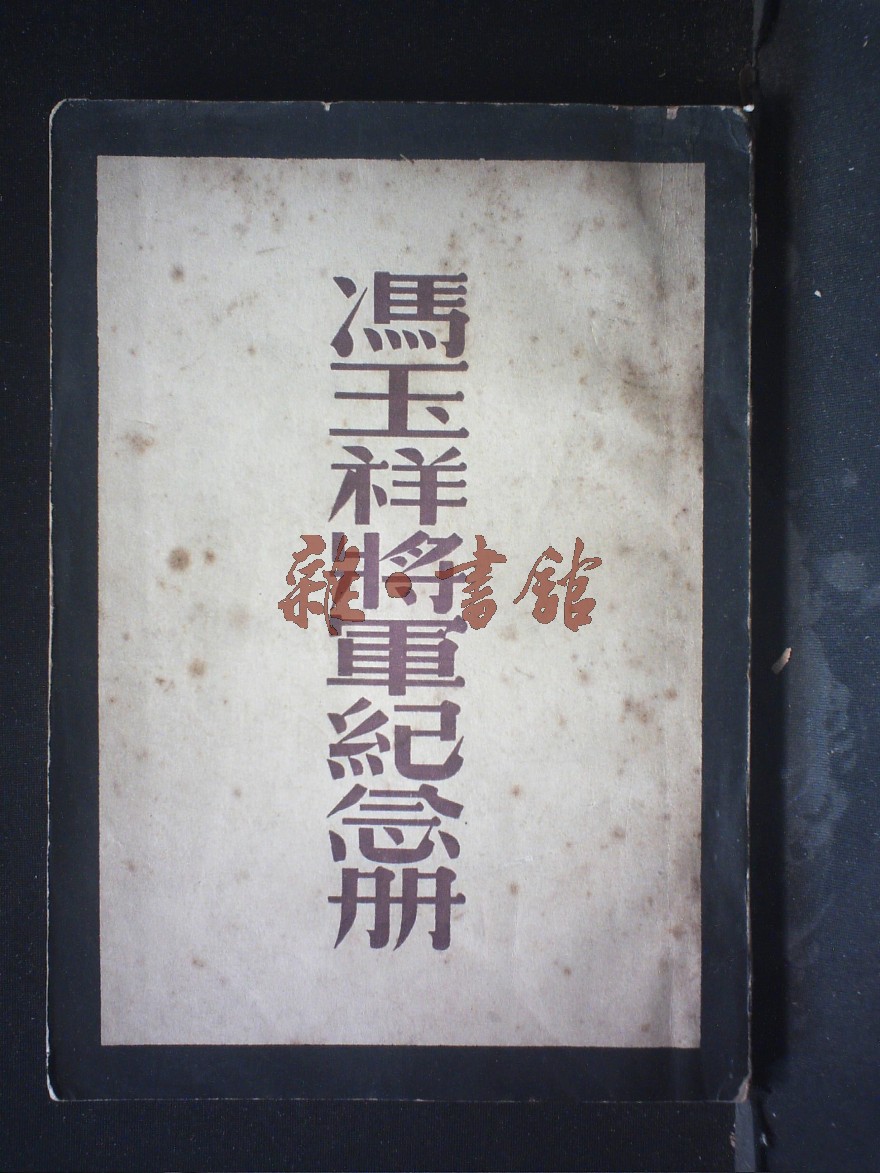 馮玉祥將軍紀念册
雜·書館